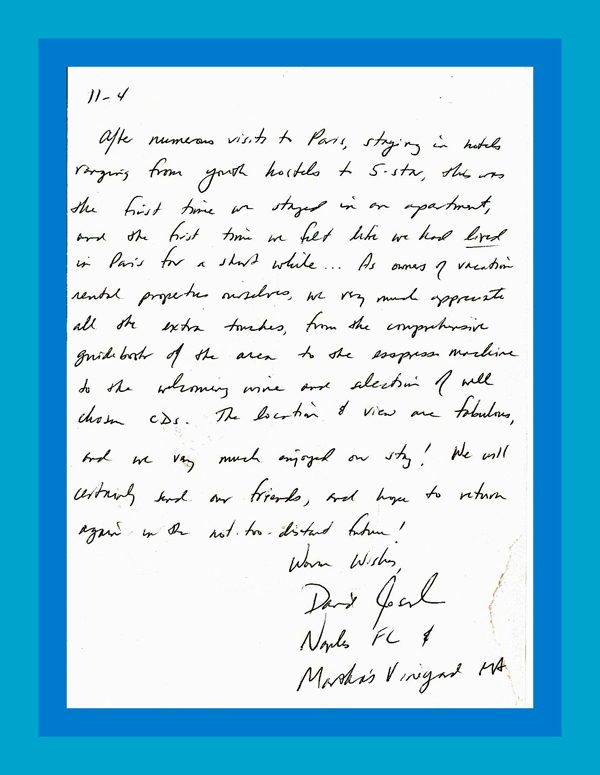 11-4
After numerous visits to Paris, staying in hotels
ranging from youth hostels to 5-star, this was
the first time we stayed in an apartment,
and the first time we felt like we had lived
in Paris for a short while... As owners of vacation
rental properties ourselves, we very much appreciate
all the extra touches, from the comprehensive
guidebook of the area to the espresso machine
to the welcoming wine and selection of well
chosen CDs. The location & view are fabulous,
and we very much enjoyed our stay! We will
certainly send our friends, and hope to return
again in the not-too-distant future!
Warm Wishes,
David
Naples FL &
Martha's Vineyard MA